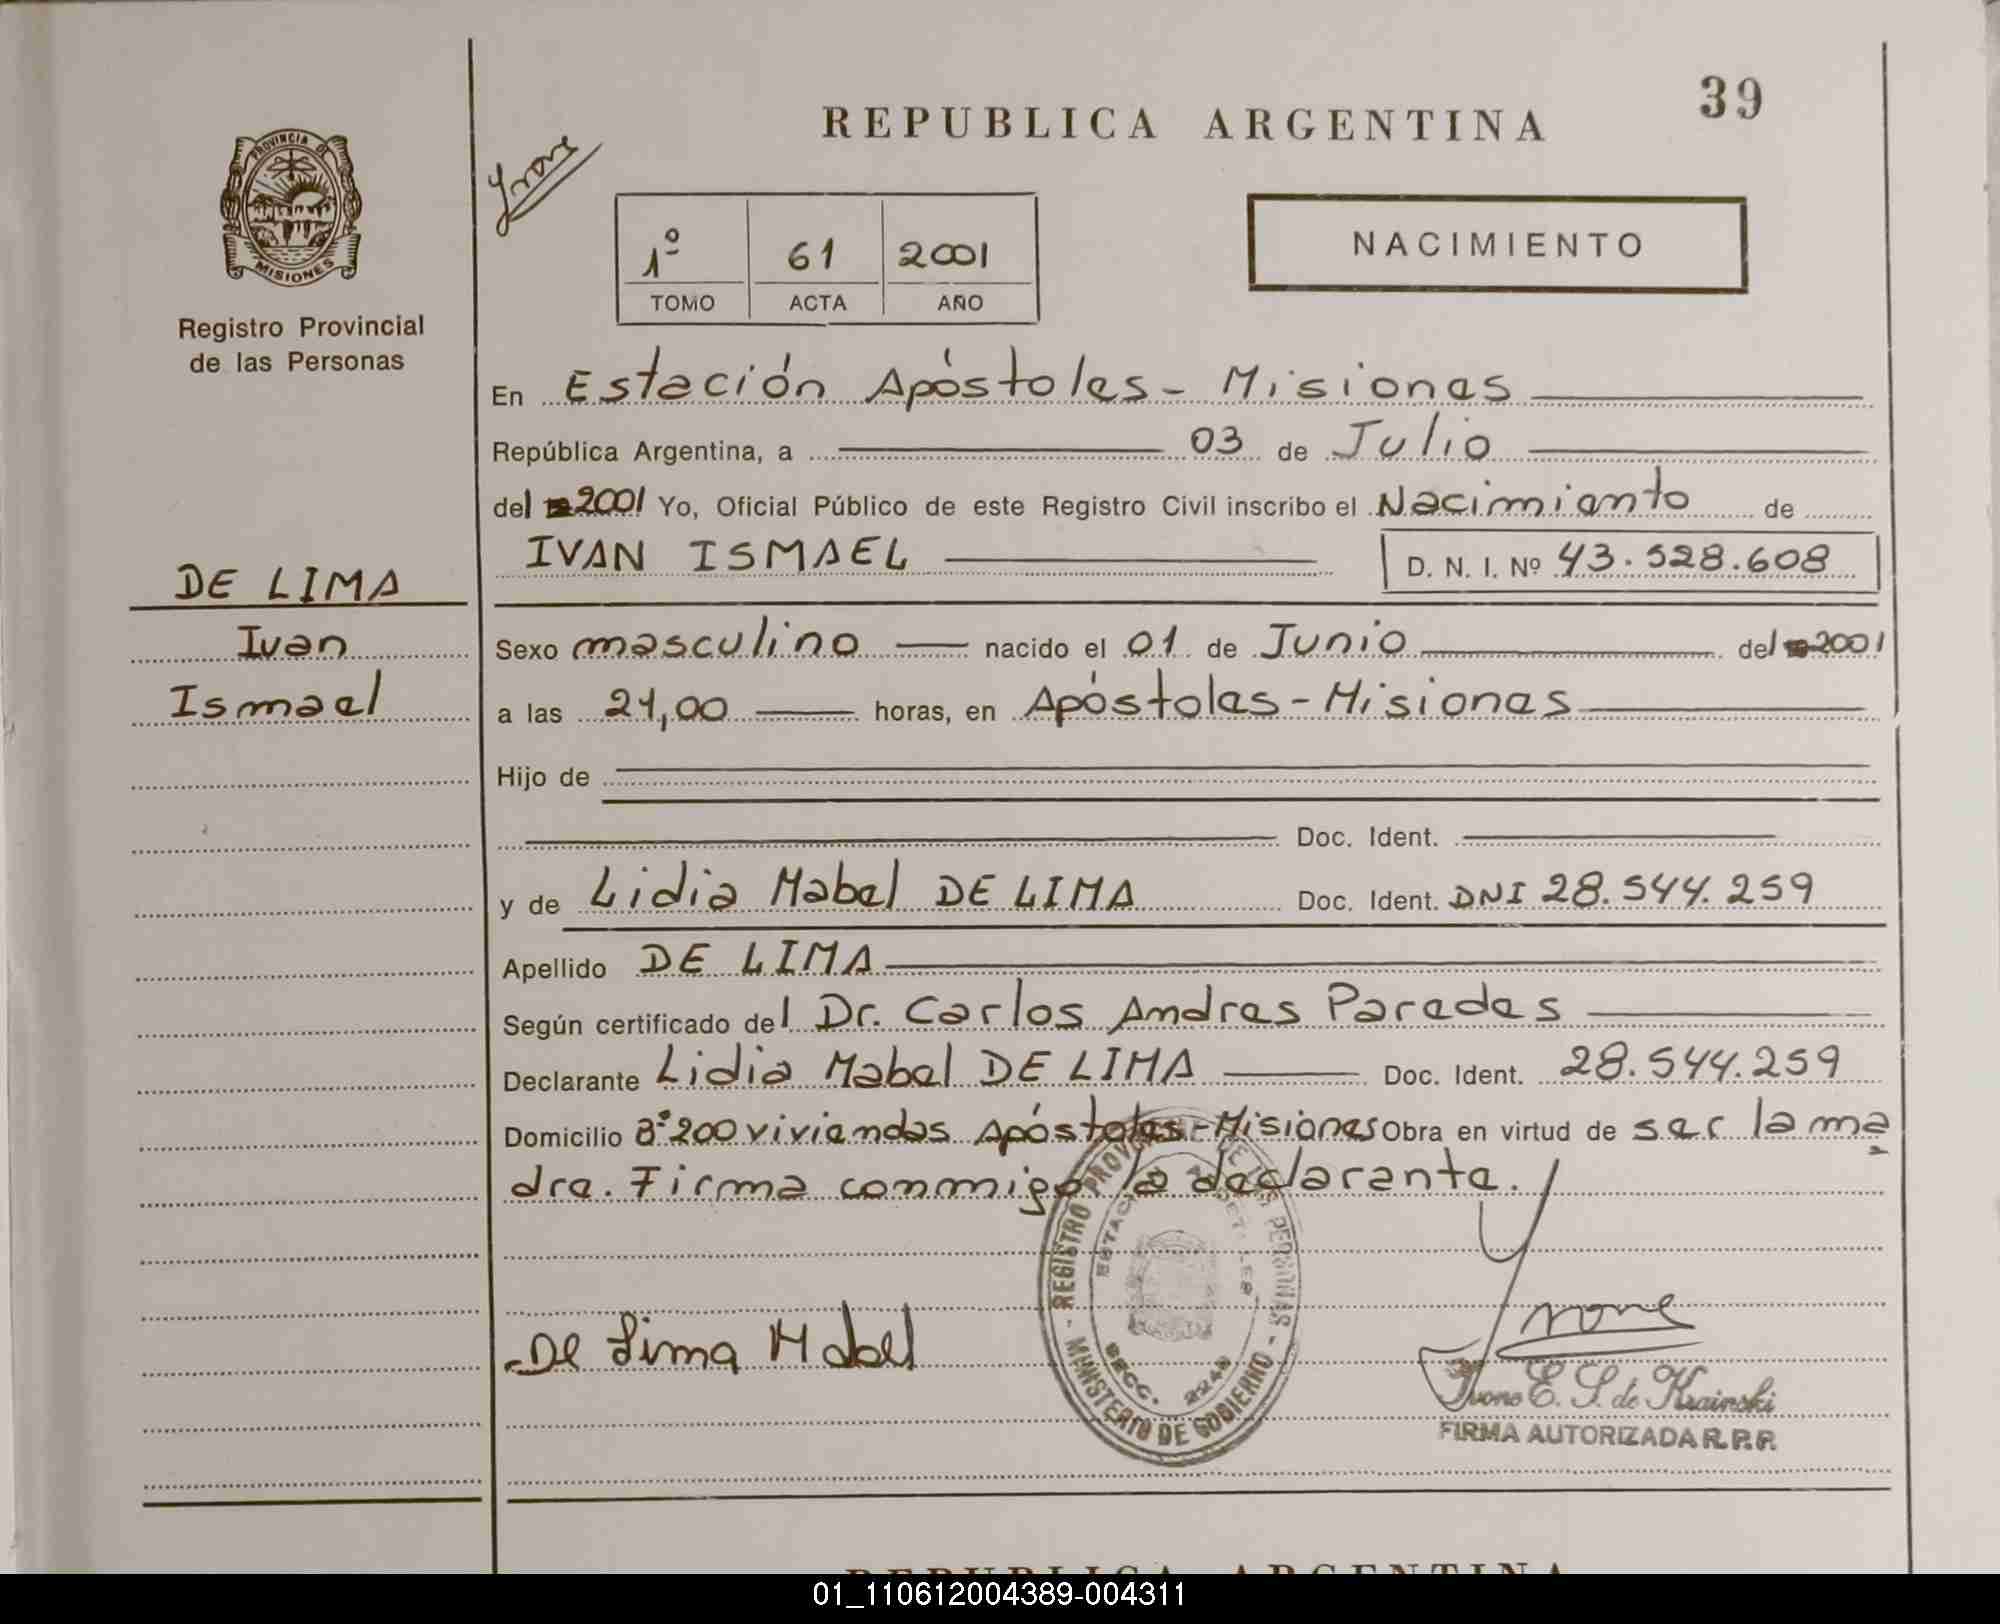 39
REPUBLICA ARGENTINA
PROVINCIA DE
MISIONES
Registro Provincial
de las Personas
1º 61 2001
TOMO ACTA AÑO
NACIMIENTO
En Estación Apóstoles - Misiones
República Argentina, a 03 de Julio
del 2001 Yo, Oficial Público de este Registro Civil inscribo el Nacimiento de
IVAN ISMAEL D. N. I. Nº 43.528.608
DE LIMA
Ivan
Ismael
Sexo masculino nacido el 01 de Junio del 2001
a las 21,00 horas, en Apóstoles - Misiones
Hijo de
Doc. Ident.
y de Lidia Mabel DE LIMA Doc. Ident. DNI 28.544.259
Apellido DE LIMA
Según certificado del Dr. Carlos Andres Paredes
Declarante Lidia Mabel DE LIMA Doc. Ident. 28.544.259
Domicilio Bº 200 viviendas Apóstoles - Misiones Obra en virtud de ser la ma
dre. Firma conmigo la declarante.
REGISTRO PROVINCIAL DE LAS PERSONAS
- MINISTERIO DE GOBIERNO -
De Lima Mabel
Ivone
Ivone E. S. de Krainski
FIRMA AUTORIZADA R. P. P.
REPUBLICA ARGENTINA
01_110612004389-004311